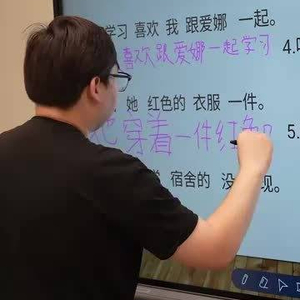 学习 喜欢 我 跟爱娜 一起。
喜欢跟爱娜一起学习
4.
她 红色的 衣服 一件。
穿着一件红色
5.
宿舍的 没 现。